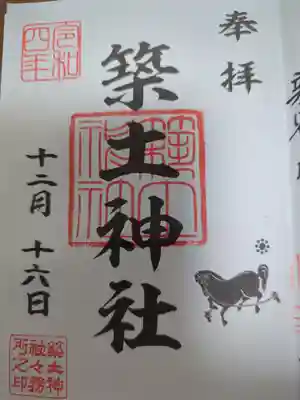 奉拝
築土神社
令和四年
十二月 十六日
築土神
社々務
所之印